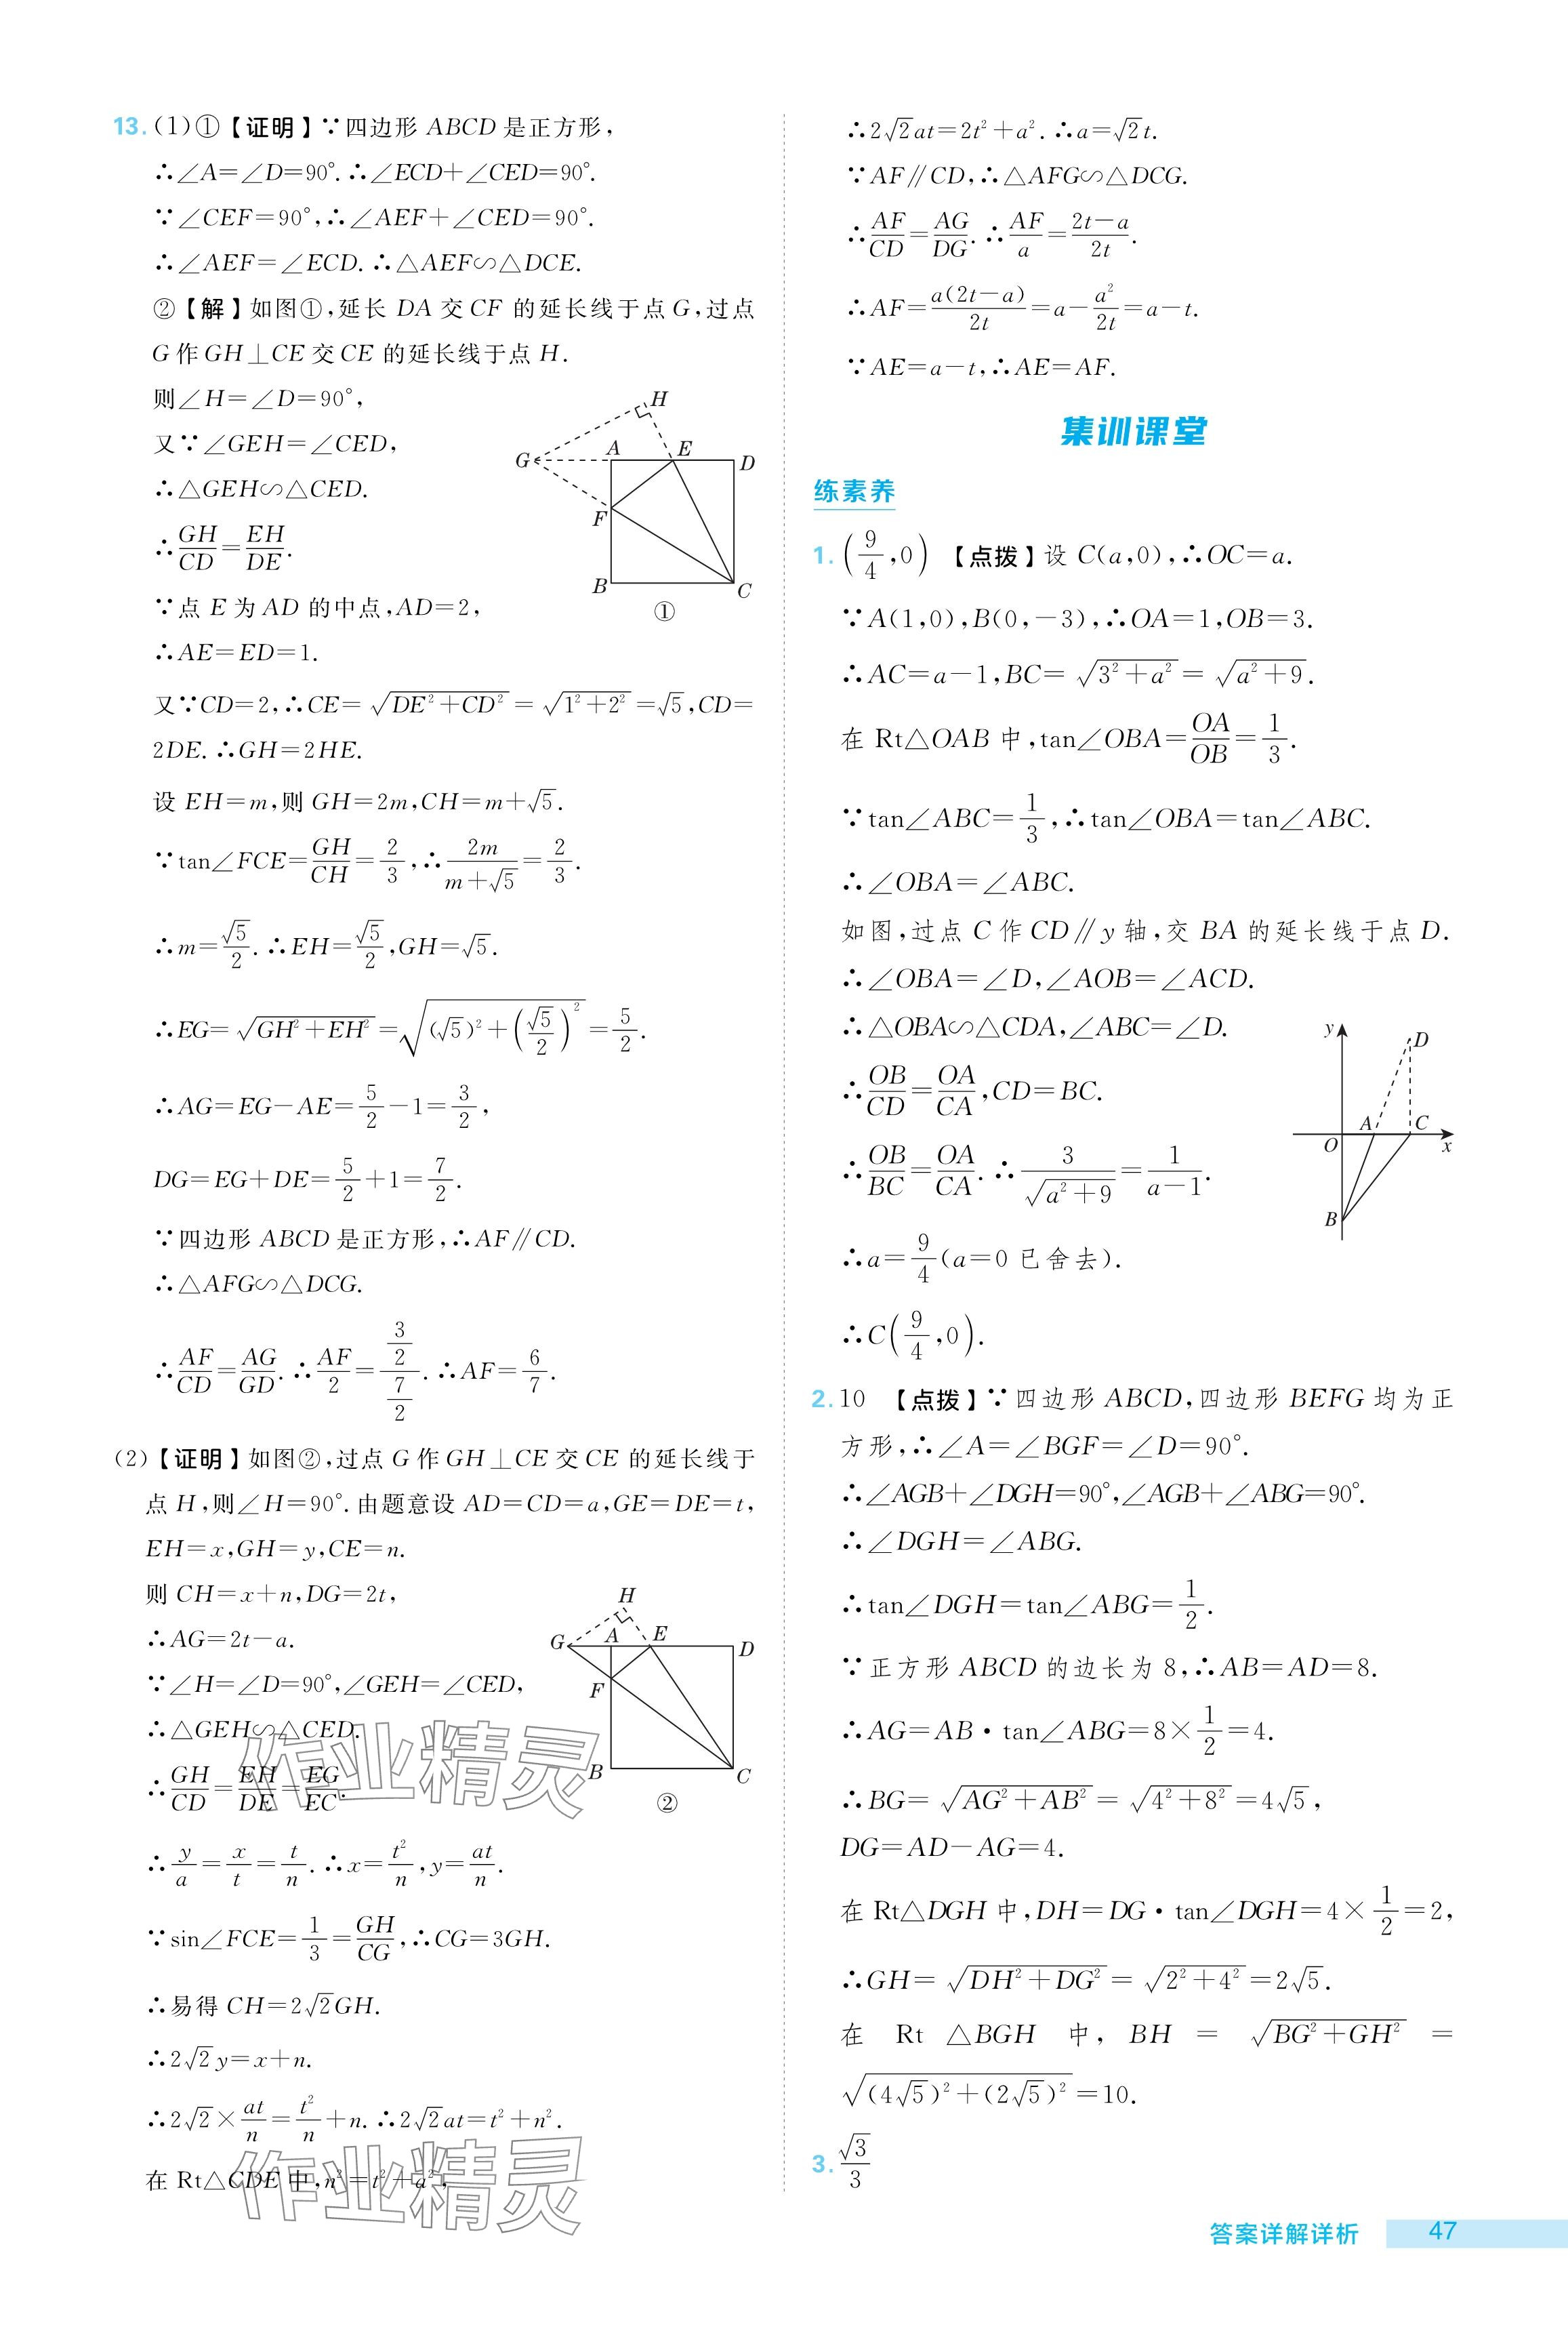 13.(1)①【证明】∵四边形 ABCD 是正方形，
∴∠A=∠D=90°. ∴∠ECD+∠CED=90°.
∵∠CEF=90°,∴∠AEF+∠CED=90°.
∴∠AEF=∠ECD. ∴△AEF∽△DCE.
②【解】如图①,延长 DA 交 CF 的延长线于点 G,过点
G 作 GH⊥CE 交 CE 的延长线于点 H.
则∠H=∠D=90°,
又∵∠GEH=∠CED,
∴△GEH∽△CED.
∴GH/CD=EH/DE.
∵点 E 为 AD 的中点,AD=2,
∴AE=ED=1.
H
G A E D
F
B C
①
又∵CD=2,∴CE=√(DE²+CD²)=√(1²+2²)=√5,CD=
2DE. ∴GH=2HE.
设 EH=m,则 GH=2m,CH=m+√5.
∵tan∠FCE=GH/CH=2/3,∴2m/(m+√5)=2/3.
∴m=√5/2. ∴EH=√5/2,GH=√5.
∴EG=√(GH²+EH²)=√((√5)²+(√5/2)²)=5/2.
∴AG=EG-AE=5/2-1=3/2,
DG=EG+DE=5/2+1=7/2.
∵四边形 ABCD 是正方形,∴AF∥CD.
∴△AFG∽△DCG.
∴AF/CD=AG/GD. ∴AF/2=(3/2)/(7/2). ∴AF=6/7.
(2)【证明】如图②,过点 G 作 GH⊥CE 交 CE 的延长线于
点 H,则∠H=90°. 由题意设 AD=CD=a,GE=DE=t,
EH=x,GH=y,CE=n.
则 CH=x+n,DG=2t,
∴AG=2t-a.
∵∠H=∠D=90°,∠GEH=∠CED,
∴△GEH∽△CED.
∴GH/CD=EH/DE=EG/EC.
H
G A E D
F
B C
②
∴y/a=x/t=t/n. ∴x=t²/n,y=at/n.
∵sin∠FCE=1/3=GH/CG,∴CG=3GH.
∴易得 CH=2√2GH.
∴2√2y=x+n.
∴2√2×at/n=t²/n+n. ∴2√2at=t²+n².
在 Rt△CDE 中,n²=t²+a²,
作业精灵
作业精灵
∴2√2at=2t²+a². ∴a=√2t.
∵AF∥CD,∴△AFG∽△DCG.
∴AF/CD=AG/DG. ∴AF/a=(2t-a)/2t.
∴AF=a(2t-a)/2t=a-a²/2t=a-t.
∵AE=a-t,∴AE=AF.
集训课堂
练素养
1.(9/4,0) 【点拨】设 C(a,0),∴OC=a.
∵A(1,0),B(0,-3),∴OA=1,OB=3.
∴AC=a-1,BC=√(3²+a²)=√(a²+9).
在 Rt△OAB 中,tan∠OBA=OA/OB=1/3.
∵tan∠ABC=1/3,∴tan∠OBA=tan∠ABC.
∴∠OBA=∠ABC.
如图,过点 C 作 CD∥y 轴,交 BA 的延长线于点 D.
∴∠OBA=∠D,∠AOB=∠ACD.
∴△OBA∽△CDA,∠ABC=∠D.
∴OB/CD=OA/CA,CD=BC.
∴OB/BC=OA/CA. ∴3/√(a²+9)=1/(a-1).
∴a=9/4(a=0 已舍去).
∴C(9/4,0).
y D
A C
O x
B
2.10 【点拨】∵四边形 ABCD,四边形 BEFG 均为正
方形,∴∠A=∠BGF=∠D=90°.
∴∠AGB+∠DGH=90°,∠AGB+∠ABG=90°.
∴∠DGH=∠ABG.
∴tan∠DGH=tan∠ABG=1/2.
∵正方形 ABCD 的边长为 8,∴AB=AD=8.
∴AG=AB·tan∠ABG=8×1/2=4.
∴BG=√(AG²+AB²)=√(4²+8²)=4√5,
DG=AD-AG=4.
在 Rt△DGH 中,DH=DG·tan∠DGH=4×1/2=2,
∴GH=√(DH²+DG²)=√(2²+4²)=2√5.
在 Rt △BGH 中, BH = √(BG²+GH²) =
√((4√5)²+(2√5)²)=10.
3.√3/3
答案详解详析 47